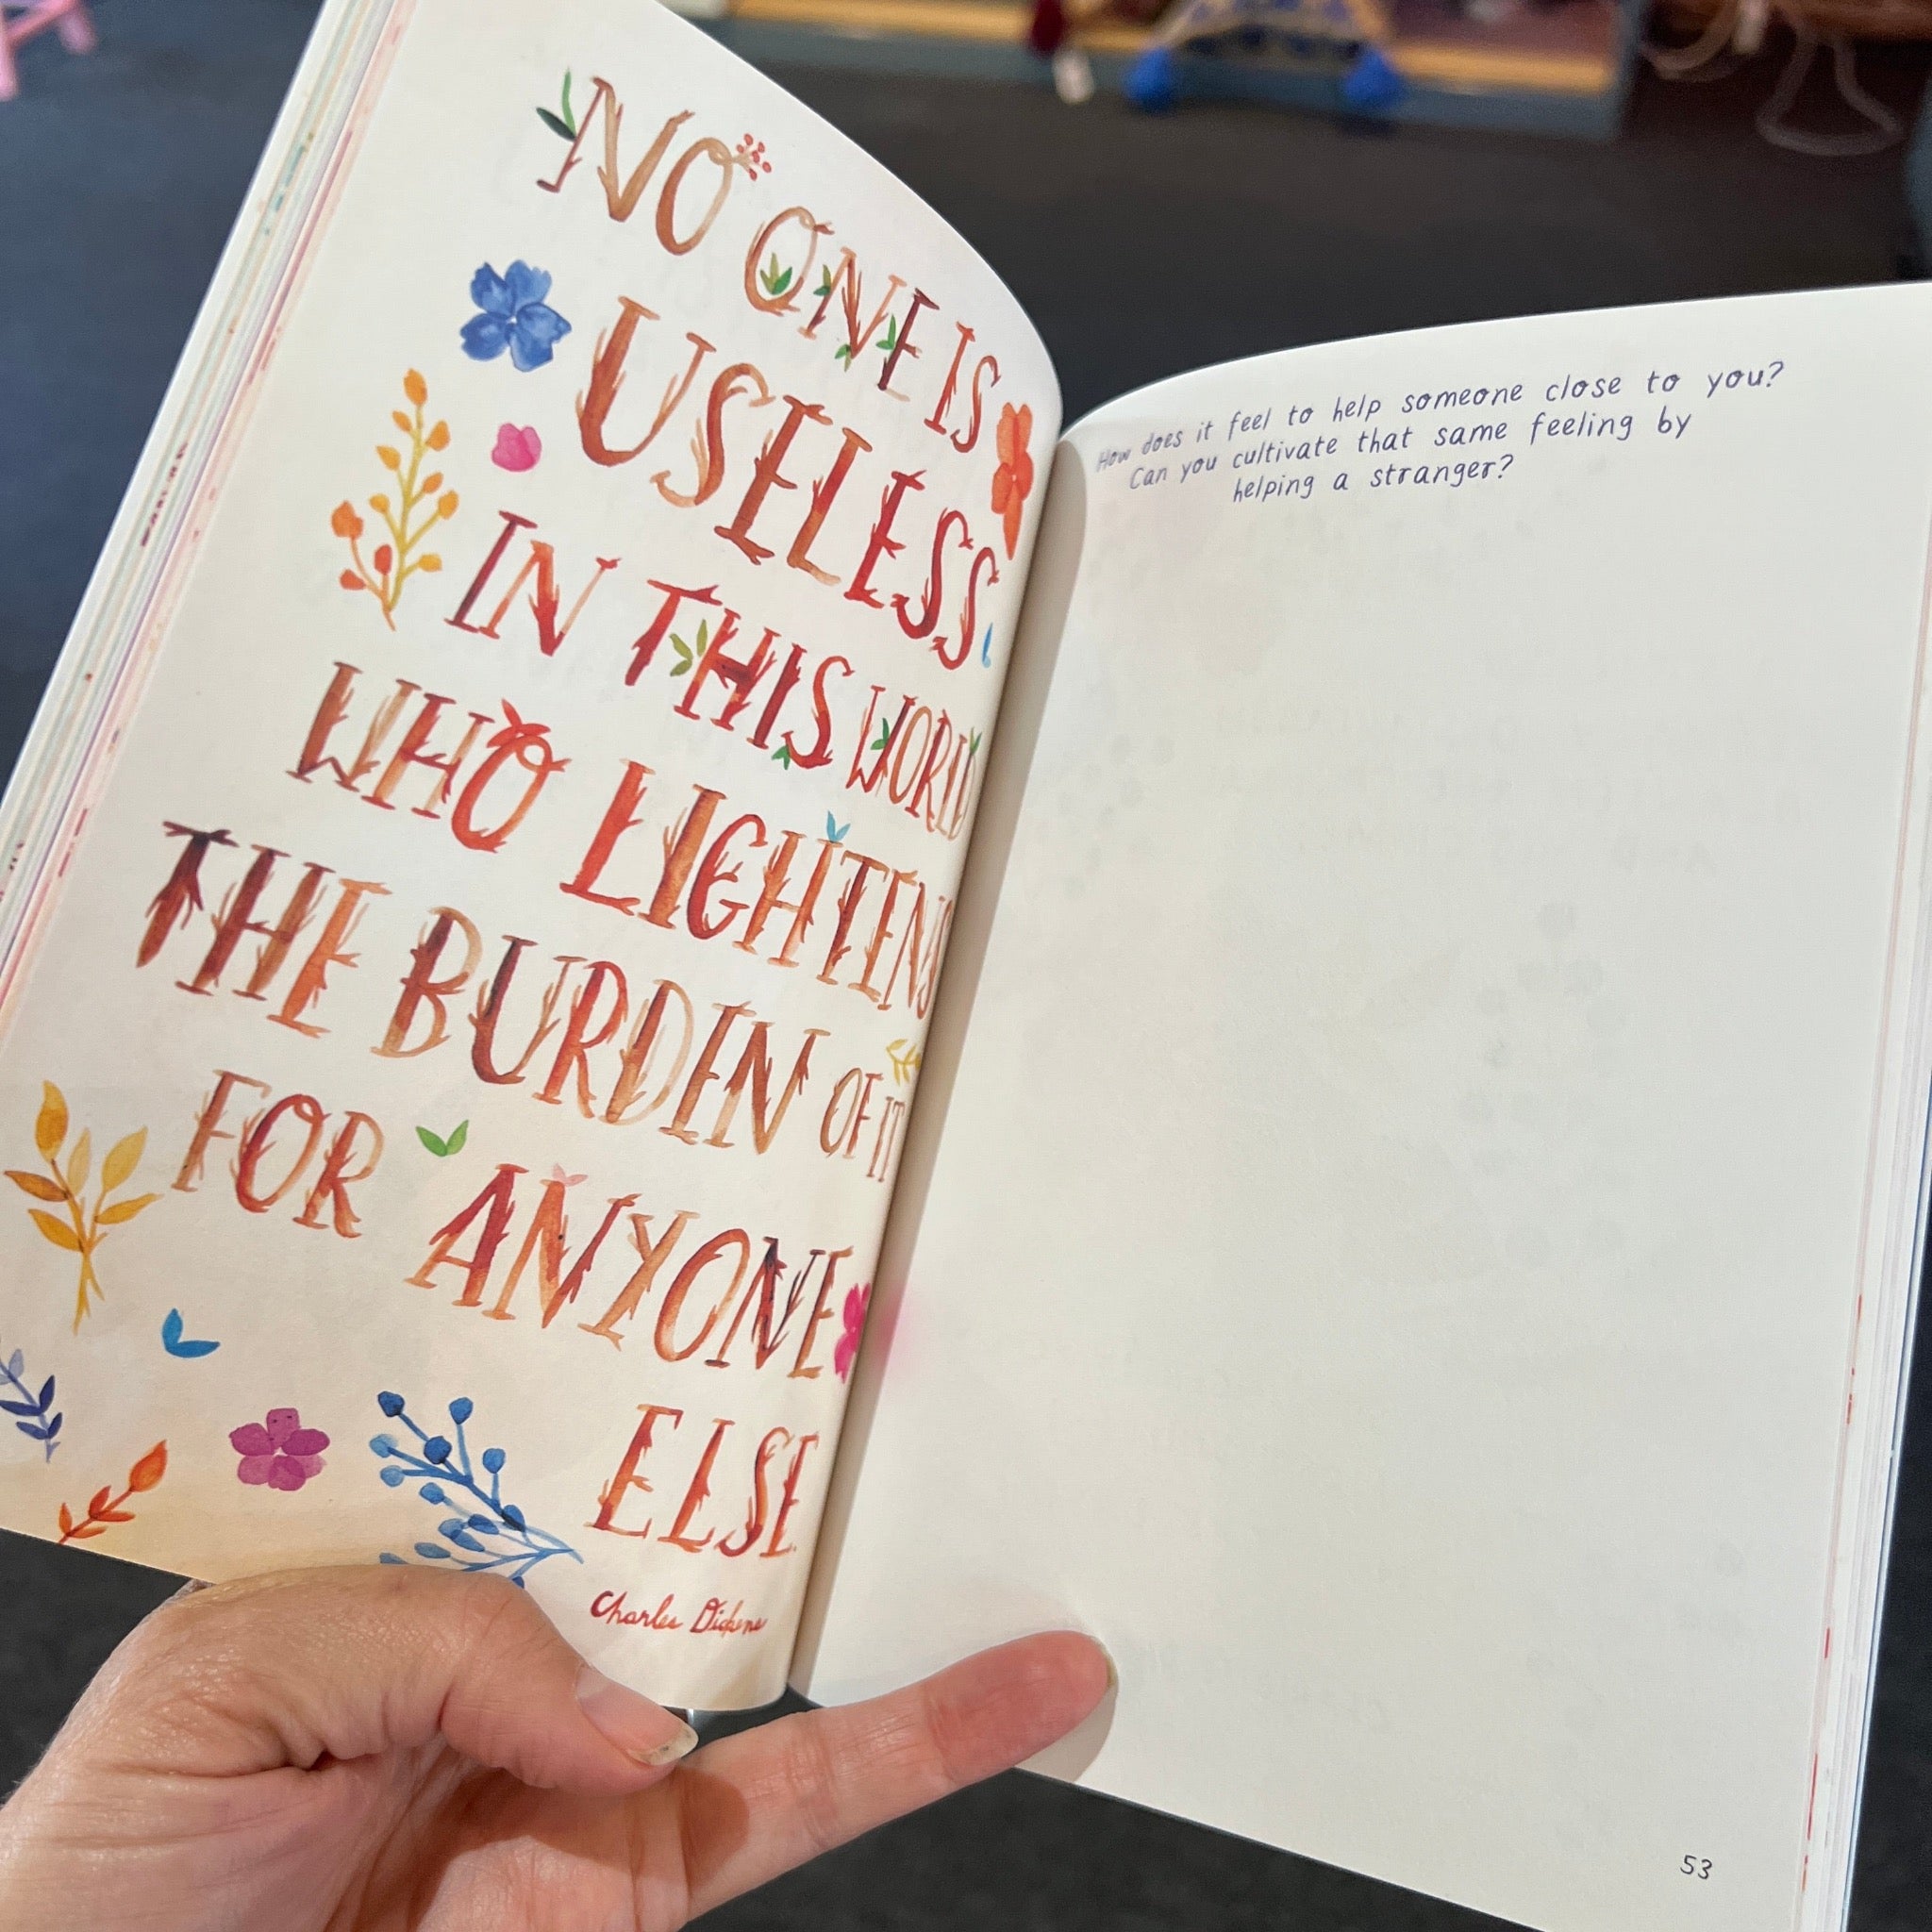 NO ONE IS
USELESS
IN THIS WORLD
WHO LIGHTENS
THE BURDEN OF IT
FOR ANYONE
ELSE.
Charles Dickens
How does it feel to help someone close to you?
Can you cultivate that same feeling by
helping a stranger?
53